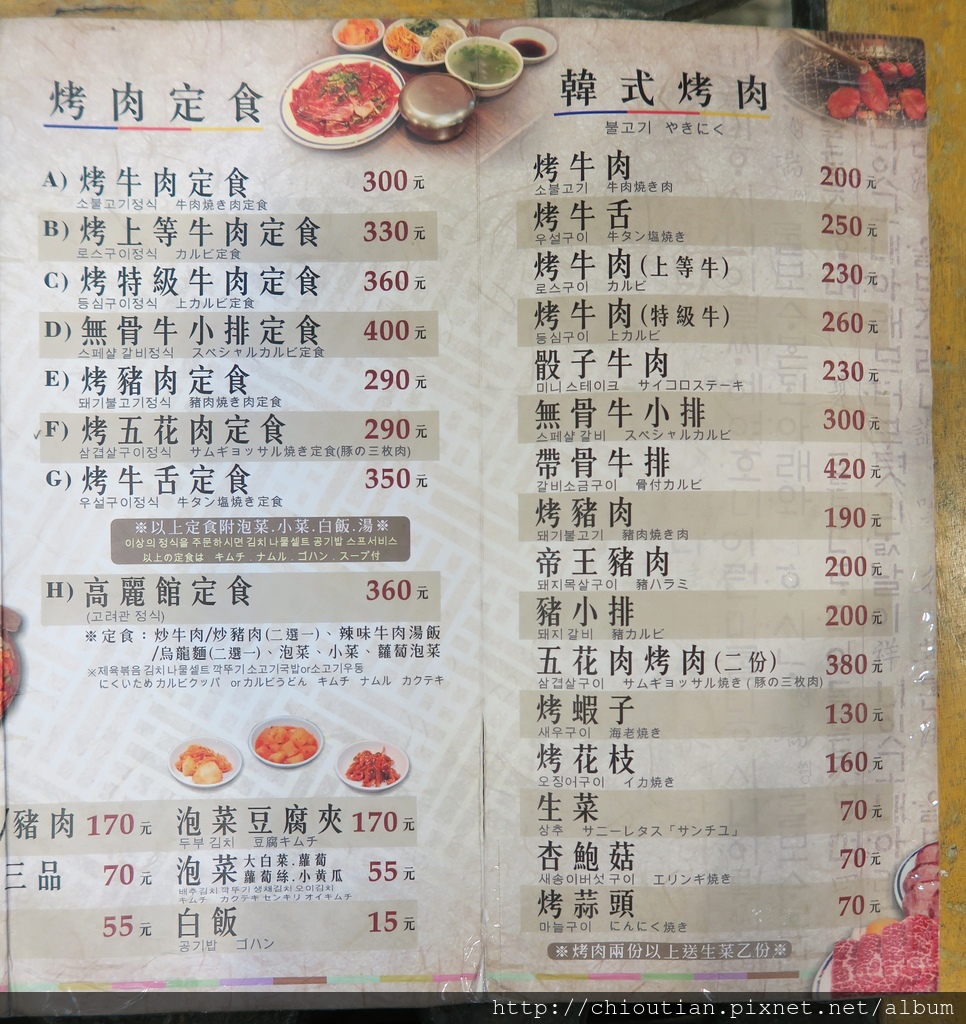 烤肉定食
A) 烤牛肉定食 300元
소불고기정식 牛肉焼き肉定食
B) 烤上等牛肉定食 330元
로스구이정식 カルビ定食
C) 烤特級牛肉定食 360元
등심구이정식 上カルビ定食
D) 無骨牛小排定食 400元
스페샬갈비정식 スペシャルカルビ定食
E) 烤豬肉定食 290元
돼기불고기정식 豬肉焼き肉定食
F) 烤五花肉定食 290元
삼겹살구이정식 サムギョッサル焼き定食(豚の三枚肉)
G) 烤牛舌定食 350元
우설구이정식 牛タン塩焼き定食
※以上定食附泡菜.小菜.白飯.湯※
이상의 정식을 주문하시면 김치 나물셀트 공기밥 스프서비스
以上の定食は キムチ．ナムル．ゴハン．スープ付
H) 高麗館定食 360元
(고려관 정식)
※定食：炒牛肉/炒豬肉(二選一)、辣味牛肉湯飯
/烏龍麵(二選一)、泡菜、小菜、蘿蔔泡菜
※제육볶음 김치나물셀트 깍뚜기소고기국밥or소고기우동
にくいためカルビクッパ orカルビうどん キムチ ナムル カクテキ
/豬肉 170元 泡菜豆腐夾 170元
두부 김치 豆腐キムチ
三品 70元 泡菜 大白菜.蘿蔔 55元
蘿蔔絲.小黃瓜
배추김치 깍뚜기 생채김치 오이김치
キムチ カクテキ センキリ オイキムチ
55元 白飯 15元
공기밥 ゴハン
韓式烤肉
불고기 やきにく
烤牛肉 200元
소불고기 牛肉焼き肉
烤牛舌 250元
우설구이 牛タン塩焼き
烤牛肉(上等牛) 230元
로스구이 カルビ
烤牛肉(特級牛) 260元
등심구이 上カルビ
骰子牛肉 230元
미니스테이크 サイコロステーキ
無骨牛小排 300元
스페샬갈비 スペシャルカルビ
帶骨牛排 420元
갈비소금구이 骨付カルビ
烤豬肉 190元
돼기불고기 豬肉焼き肉
帝王豬肉 200元
돼지목살구이 豬ハラミ
豬小排 200元
돼지갈비 豬カルビ
五花肉烤肉(二份) 380元
삼겹살구이 サムギョッサル焼き(豚の三枚肉)
烤蝦子 130元
새우구이 海老焼き
烤花枝 160元
오징어구이 イカ焼き
生菜 70元
상추 サニーレタス「サンチュ」
杏鮑菇 70元
새송이버섯구이 エリンギ焼き
烤蒜頭 70元
마늘구이 にんにく焼き
※烤肉兩份以上送生菜乙份※
http://chioutian.pixnet.net/album